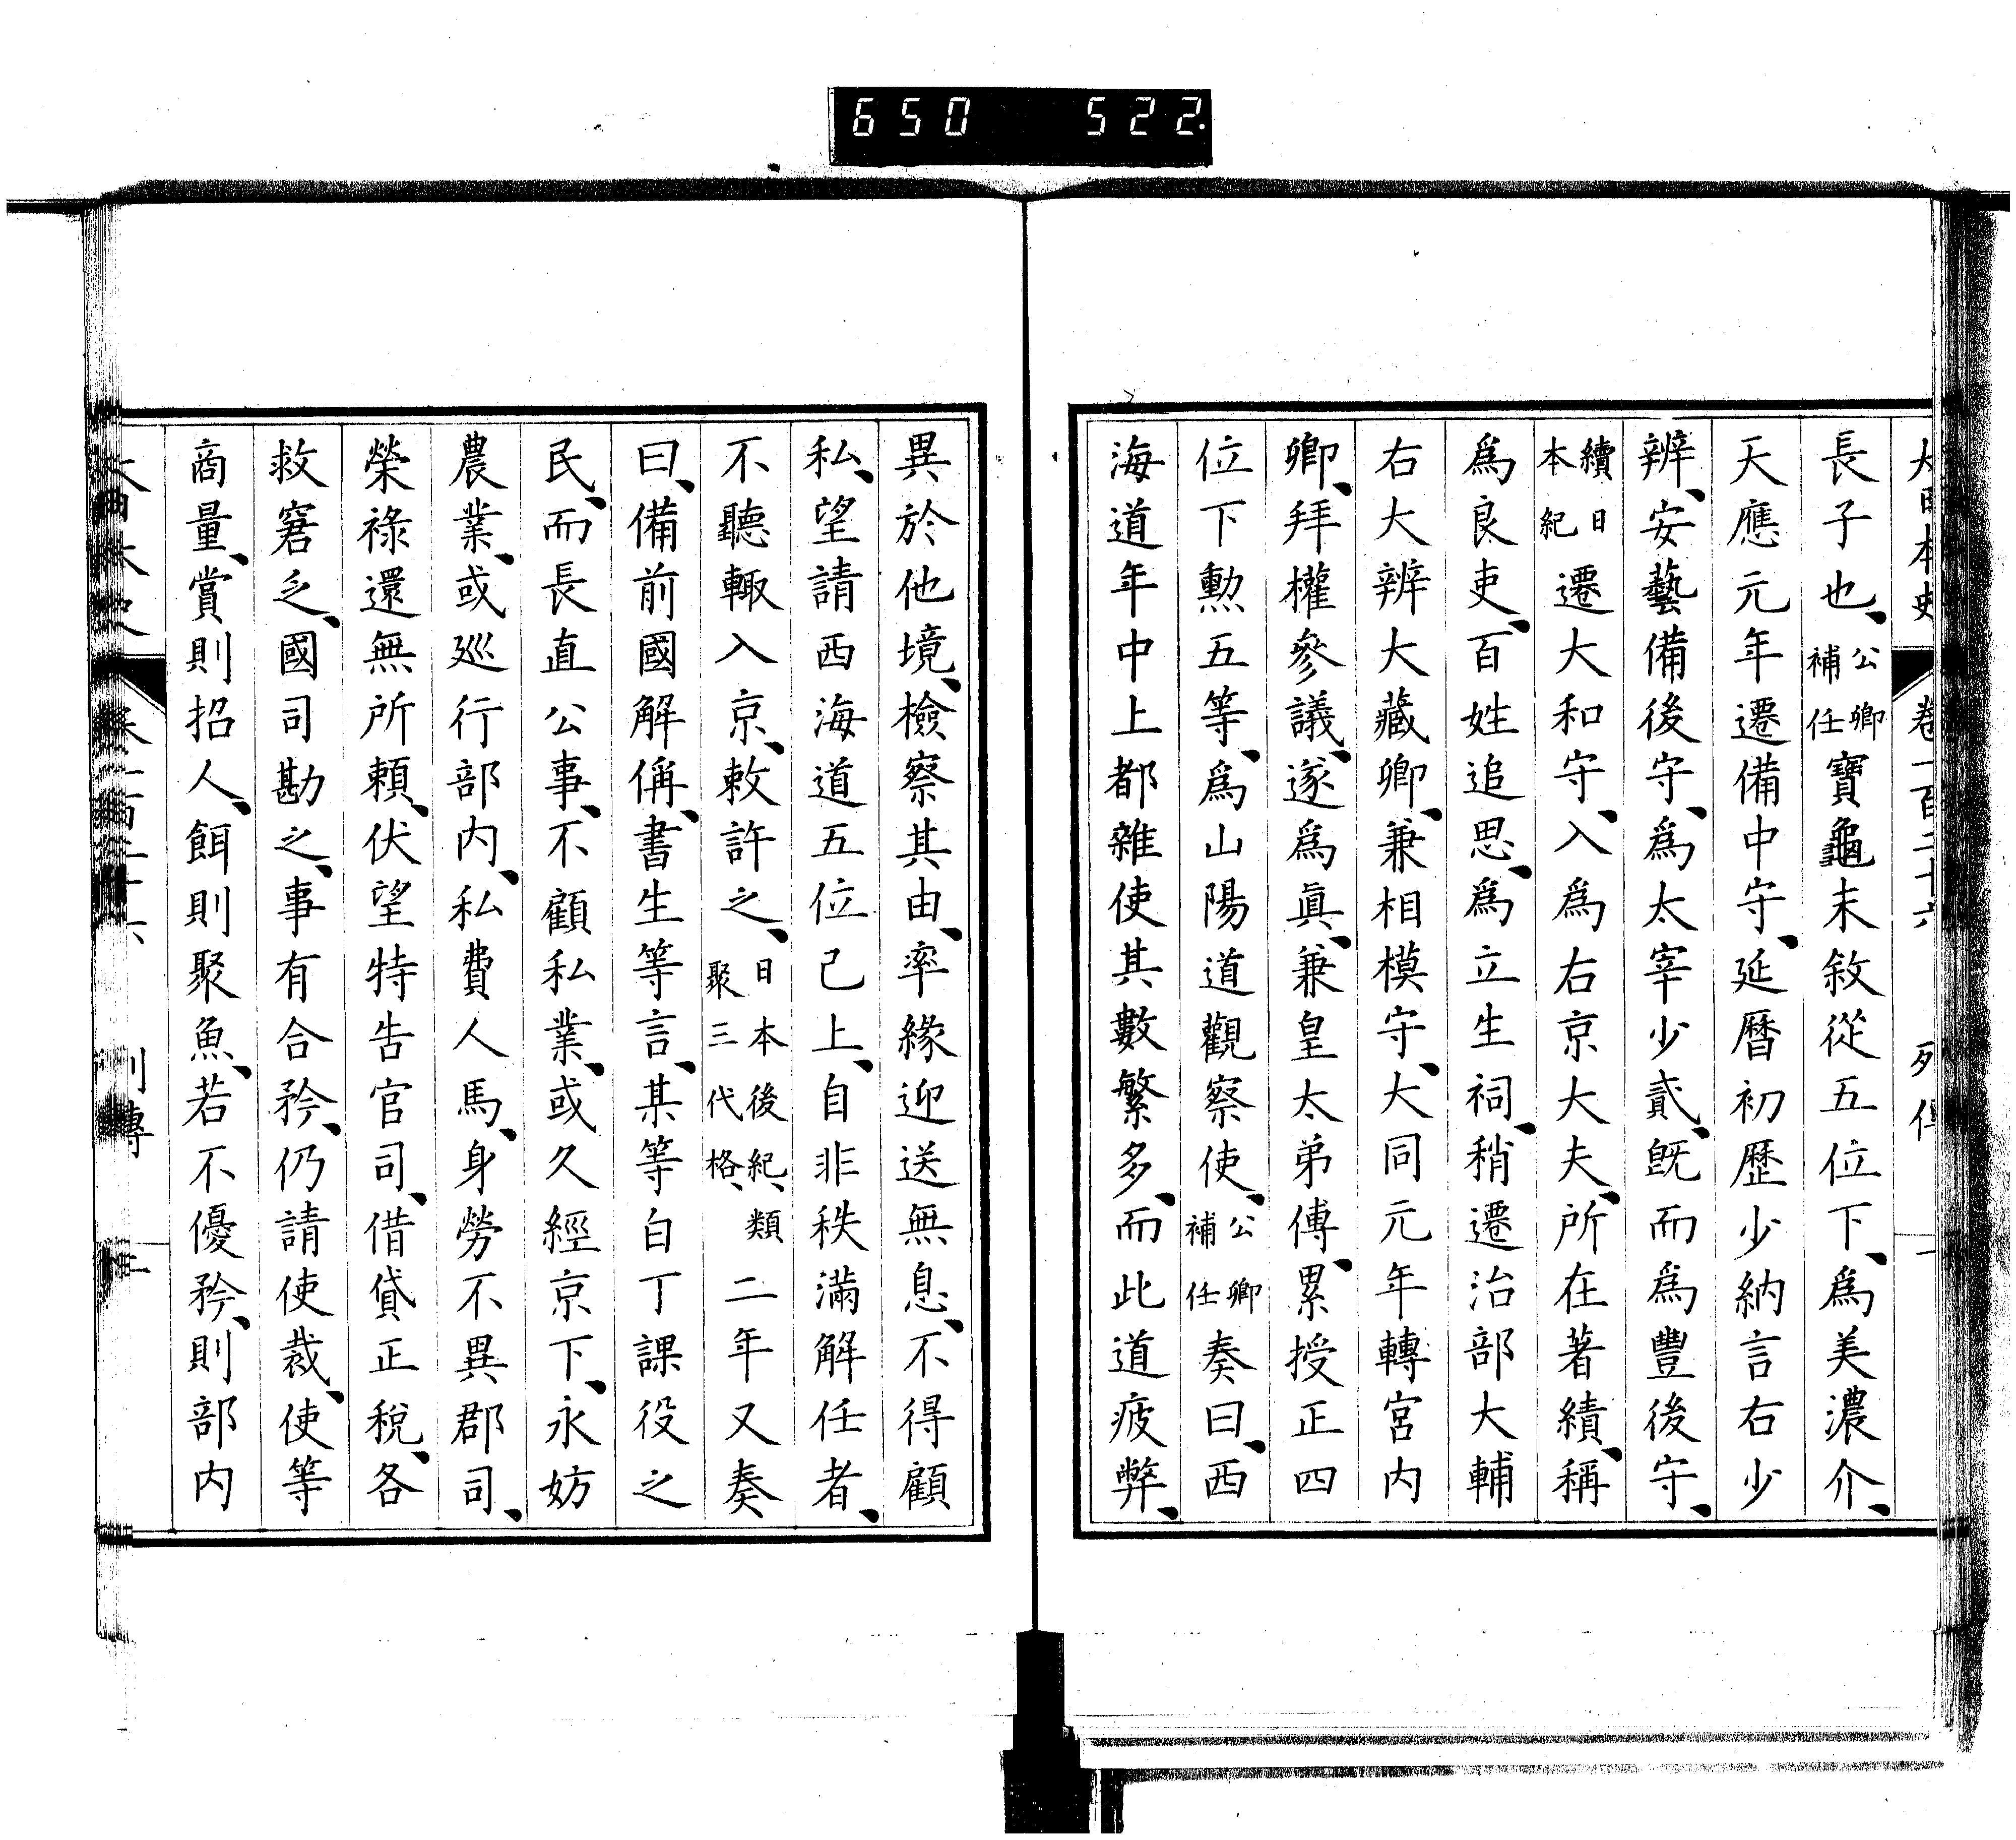 650 522
大日本史 卷一百二十六 列傳
長子也、公卿補任寶龜末敘從五位下、爲美濃介、
天應元年遷備中守、延曆初歷少納言右少
辨、安藝備後守、爲太宰少貳、既而爲豐後守、
續日本紀遷大和守、入爲右京大夫、所在著績、稱
爲良吏、百姓追思、爲立生祠、稍遷治部大輔
右大辨大藏卿、兼相模守、大同元年轉宮內
卿、拜權參議、遂爲眞、兼皇太弟傅、累授正四
位下勳五等、爲山陽道觀察使、公卿補任奏曰、西
海道年中上都雜使其數繁多、而此道疲弊、
異於他境、檢察其由、率緣迎送無息、不得顧
私、望請西海道五位已上、自非秩滿解任者、
不聽輙入京、敕許之、日本後紀、類聚三代格、二年又奏
曰、備前國解偁、書生等言、某等白丁課役之
民、而長直公事、不顧私業、或久經京下、永妨
農業、或巡行部內、私費人馬、身勞不異郡司、
榮祿還無所頼、伏望特告官司、借貸正稅、各
救窘乏、國司勘之、事有合矜、仍請使裁、使等
商量、賞則招人、餌則聚魚、若不優矜、則部內
列傳